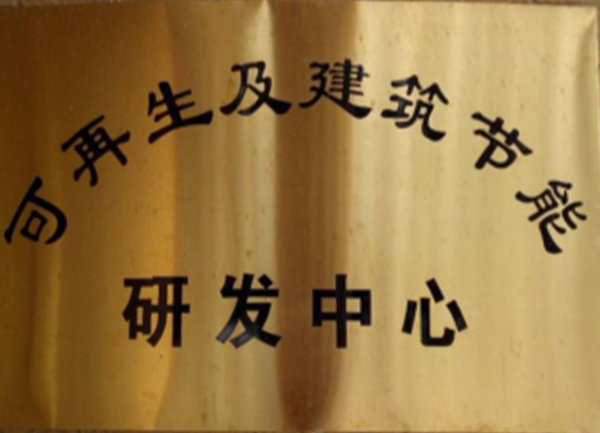 可再生及建筑节能
研发中心